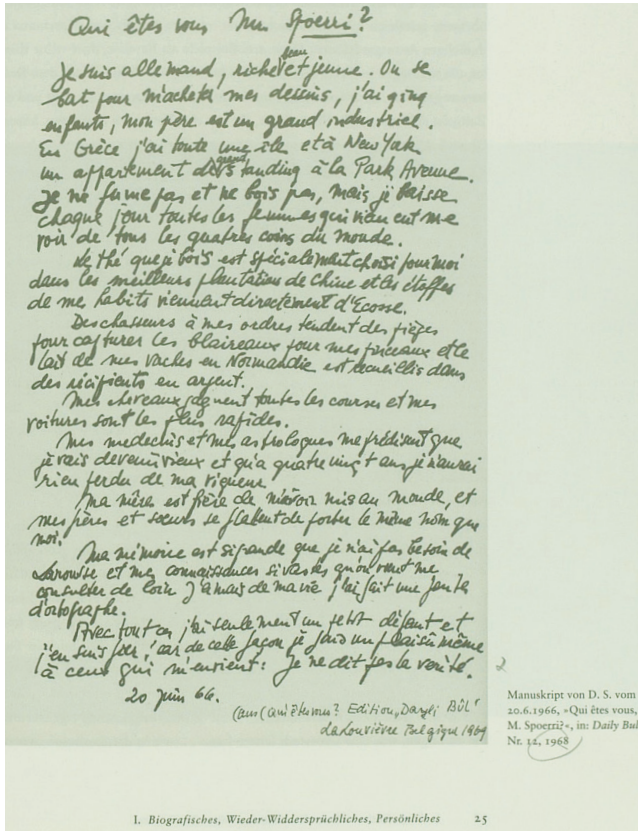 Qui êtes vous Mr Spoerri?
Je suis allemand, riche, beau et jeune. On se
bat pour m'acheter mes dessins, j'ai çinq
enfants, mon père est un grand industriel.
En Grèce j'ai toute une île et à New York
un appartement de grand standing à la Park Avenue.
Je ne fume pas et ne bois pas, mais je baisse
chaque jour toutes les femmes qui viennent me
voir de tous les quatres coins du monde.
Le thé que je bois est spécialement choisi pour moi
dans les meilleurs plantation de Chine et les étoffes
de mes habits viennent directement d'Ecosse.
Des chasseurs à mes ordres tendent des pièges
pour capturer les blaireaux pour mes pinceaux et le
lait de mes vaches en Normandie est recueillis dans
des récipients en argent.
Mes chevaux gagnent toutes les courses et mes
voitures sont les plus rapides.
Mes medecins et mes astrologues me prédisent que
je vais devenir vieux et qu'a quatre vingt ans je n'aurai
rien perdu de ma vigueur.
Ma mère est fière de m'avoir mis au monde, et
mes frères et sœurs se flattent de porter le même nom que
moi.
Ma mémoire est si grande que je n'ai pas besoin de
Larousse et mes connaissances si vastes qu'on vient me
consulter de loin. Jamais de ma vie j'ai fait une faute
d'ortographe.
Avec tout ça j'ai seulement un petit défaut et
j'en suis fier, car de cette façon je fais un plaisir même
à ceux qui m'envient: Je ne dit pas la verité.
20 Juin 66.
(aus (qui êtes vous? Edition „Dayli BÛL"
La Louvière Belgique 1969
2
Manuskript von D. S. vom
20.6.1966, »Qui êtes vous,
M. Spoerri?«, in: Daily Bul
Nr. 12, 1968
I. Biografisches, Wieder-Widdersprüchliches, Persönliches 25